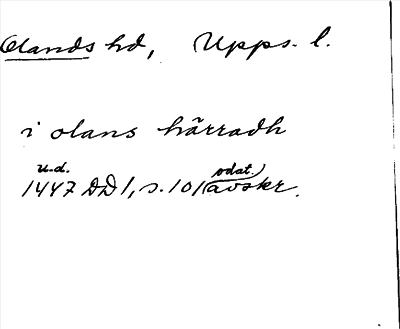 Olands hd, Upps. l.
i olans härradh
u.d. odat.)
1447 DD1, s. 101 (avskr.